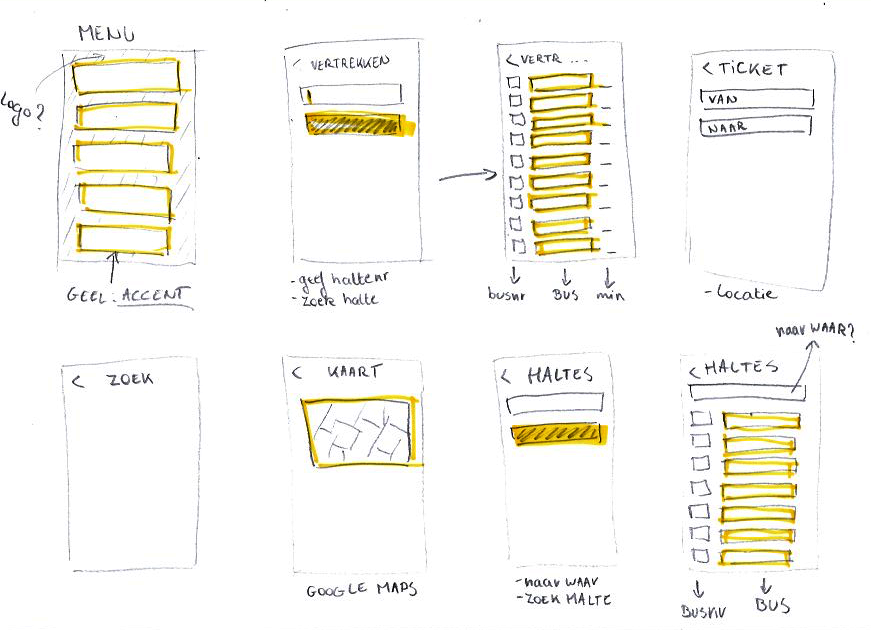 MENU
Logo?
GEEL: ACCENT
< VERTREKKEN
- geef haltenr
- zoek halte
< VERTR ...
busnr
BUS
min
< TICKET
VAN
NAAR
- Locatie
< ZOEK
< KAART
GOOGLE MAPS
< HALTES
- naar WAAR
- ZOEK HALTE
naar WAAR?
< HALTES
BUSNR
BUS